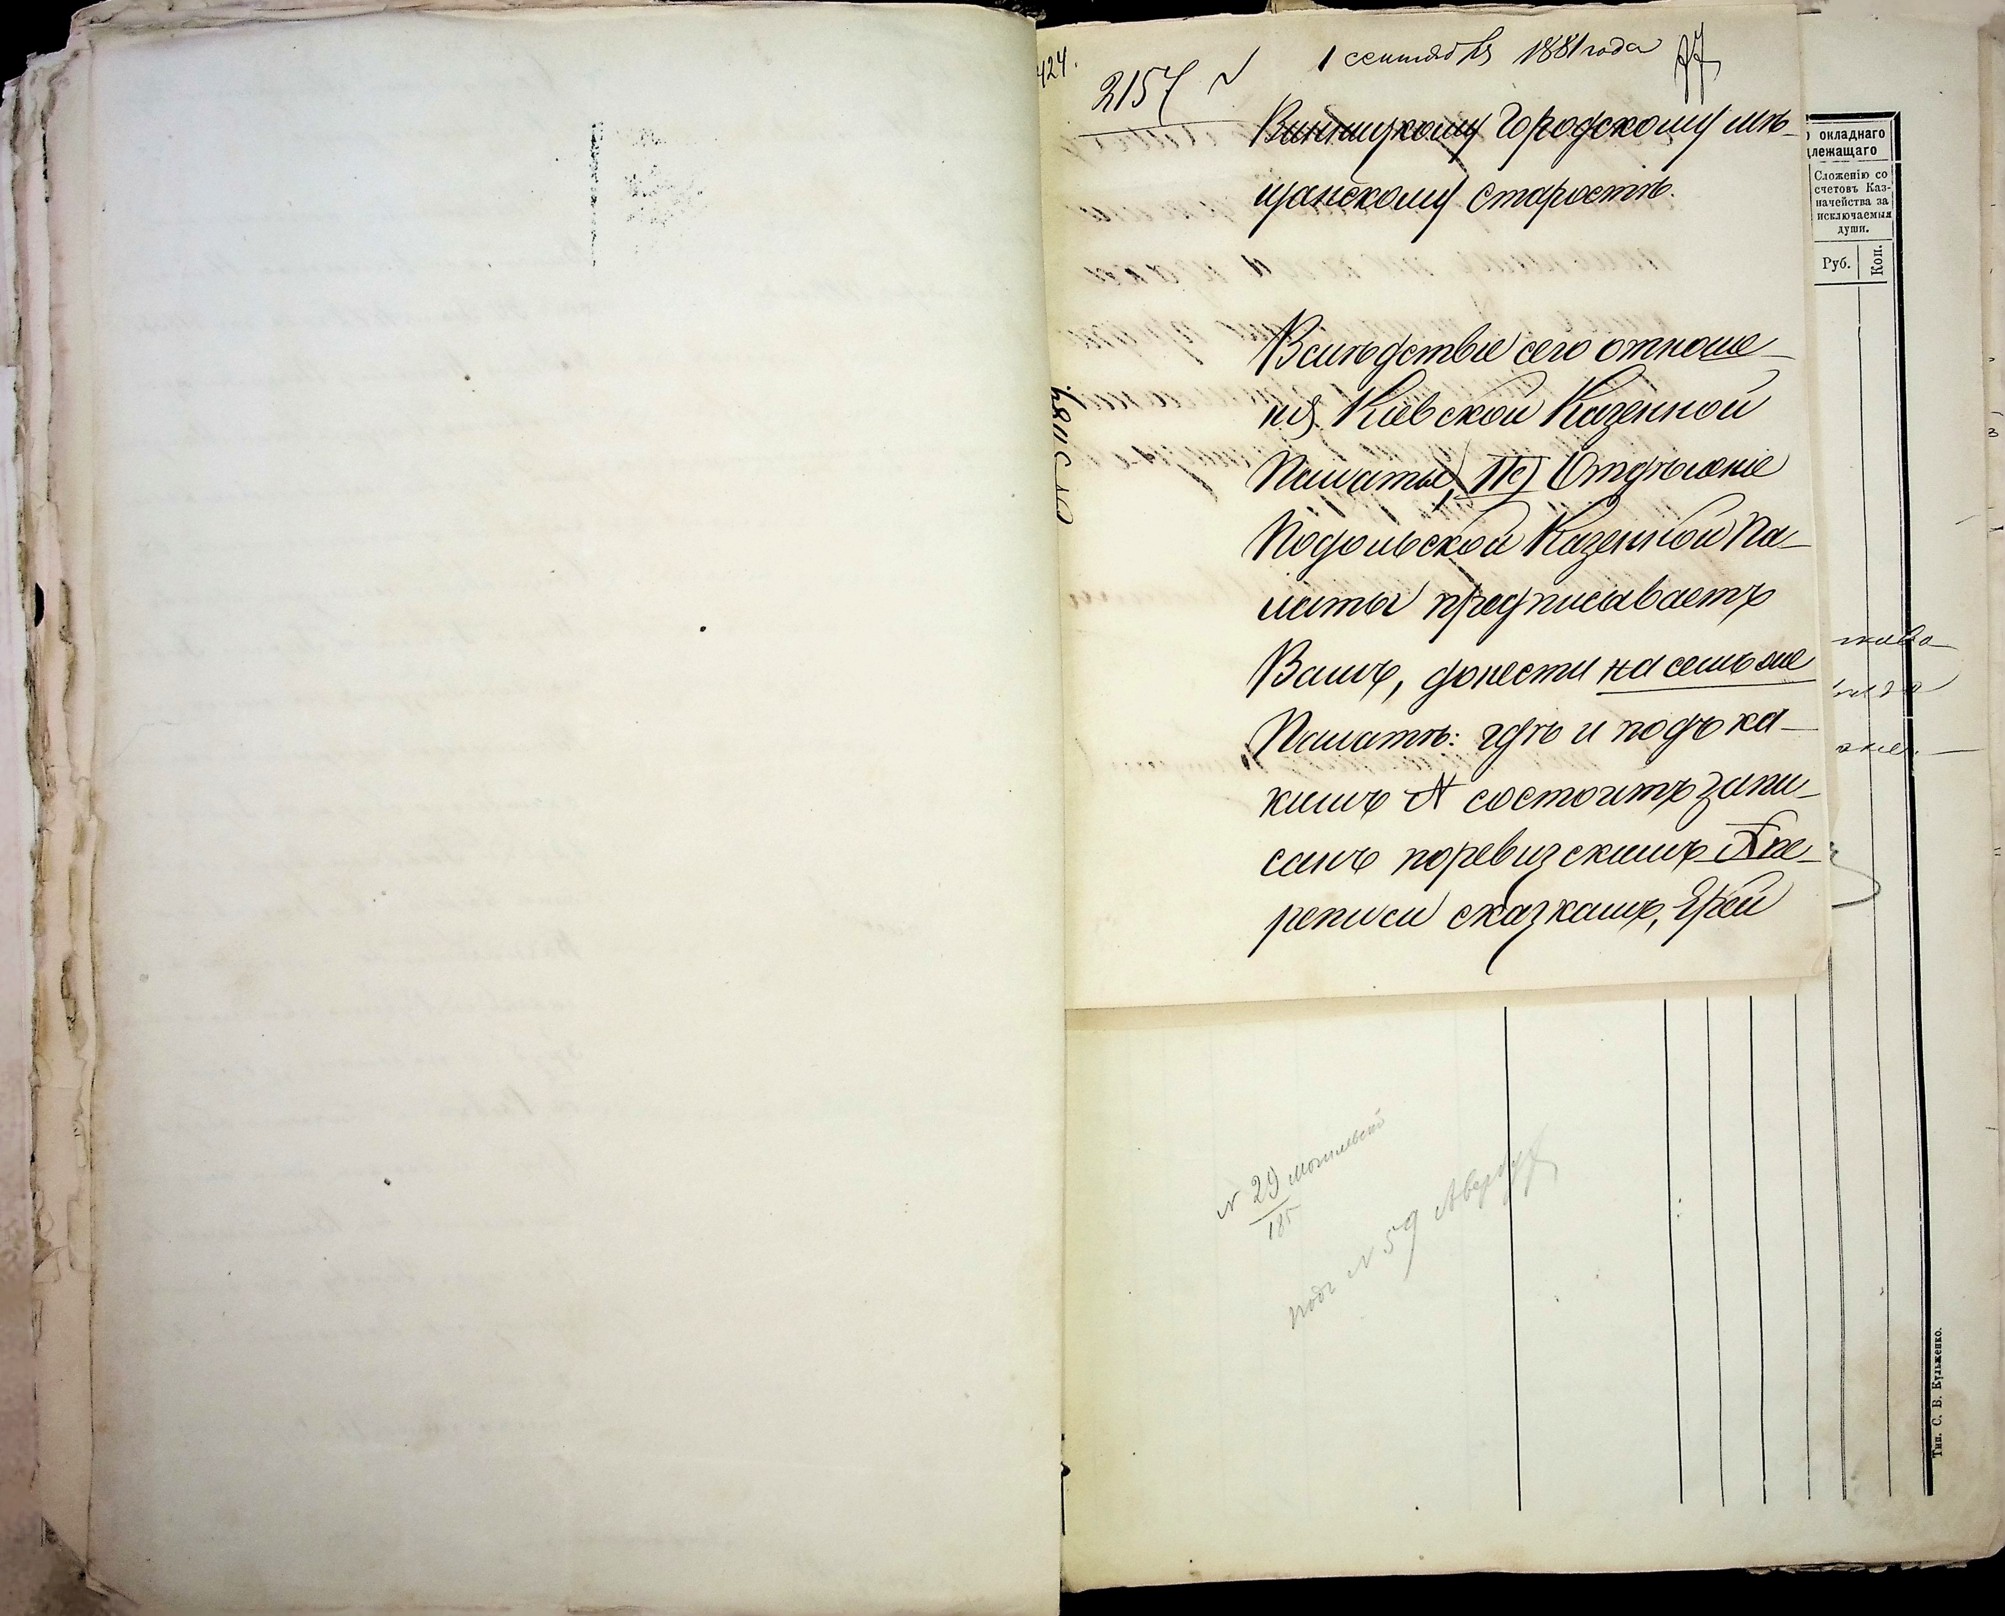 424.
2157
1 сентября 1881 года
Винницкому Городскому мѣ-
щанскому старостѣ.
Вслѣдствіе сего отноше-
нія Кіевской Казенной
Палаты, Отдѣленіе
Подольской Казенной Па-
латы предписываетъ
Вамъ, донести на семъ же
Палатѣ: гдѣ и подъ ка-
кимъ № состоитъ запи-
санъ по ревизскимъ
реписи сказкамъ,
окладнаго
лежащаго
Сложенію со
счетовъ Каз-
начейства за
исключаемыя
души.
Руб. Коп.
№ 29 могилевской
185
подъ № 59
Тип. С. В. Кульженко.